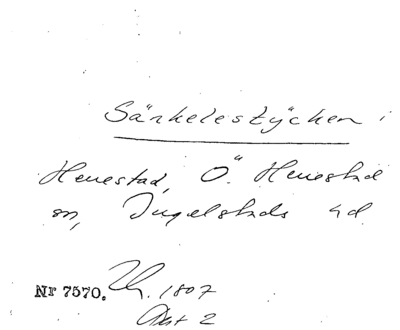 Särkelestÿcken i
Herrestad, Ö. Herrestad
sn, Ingelstads hd
Nr 7570. 1807
Akt 2